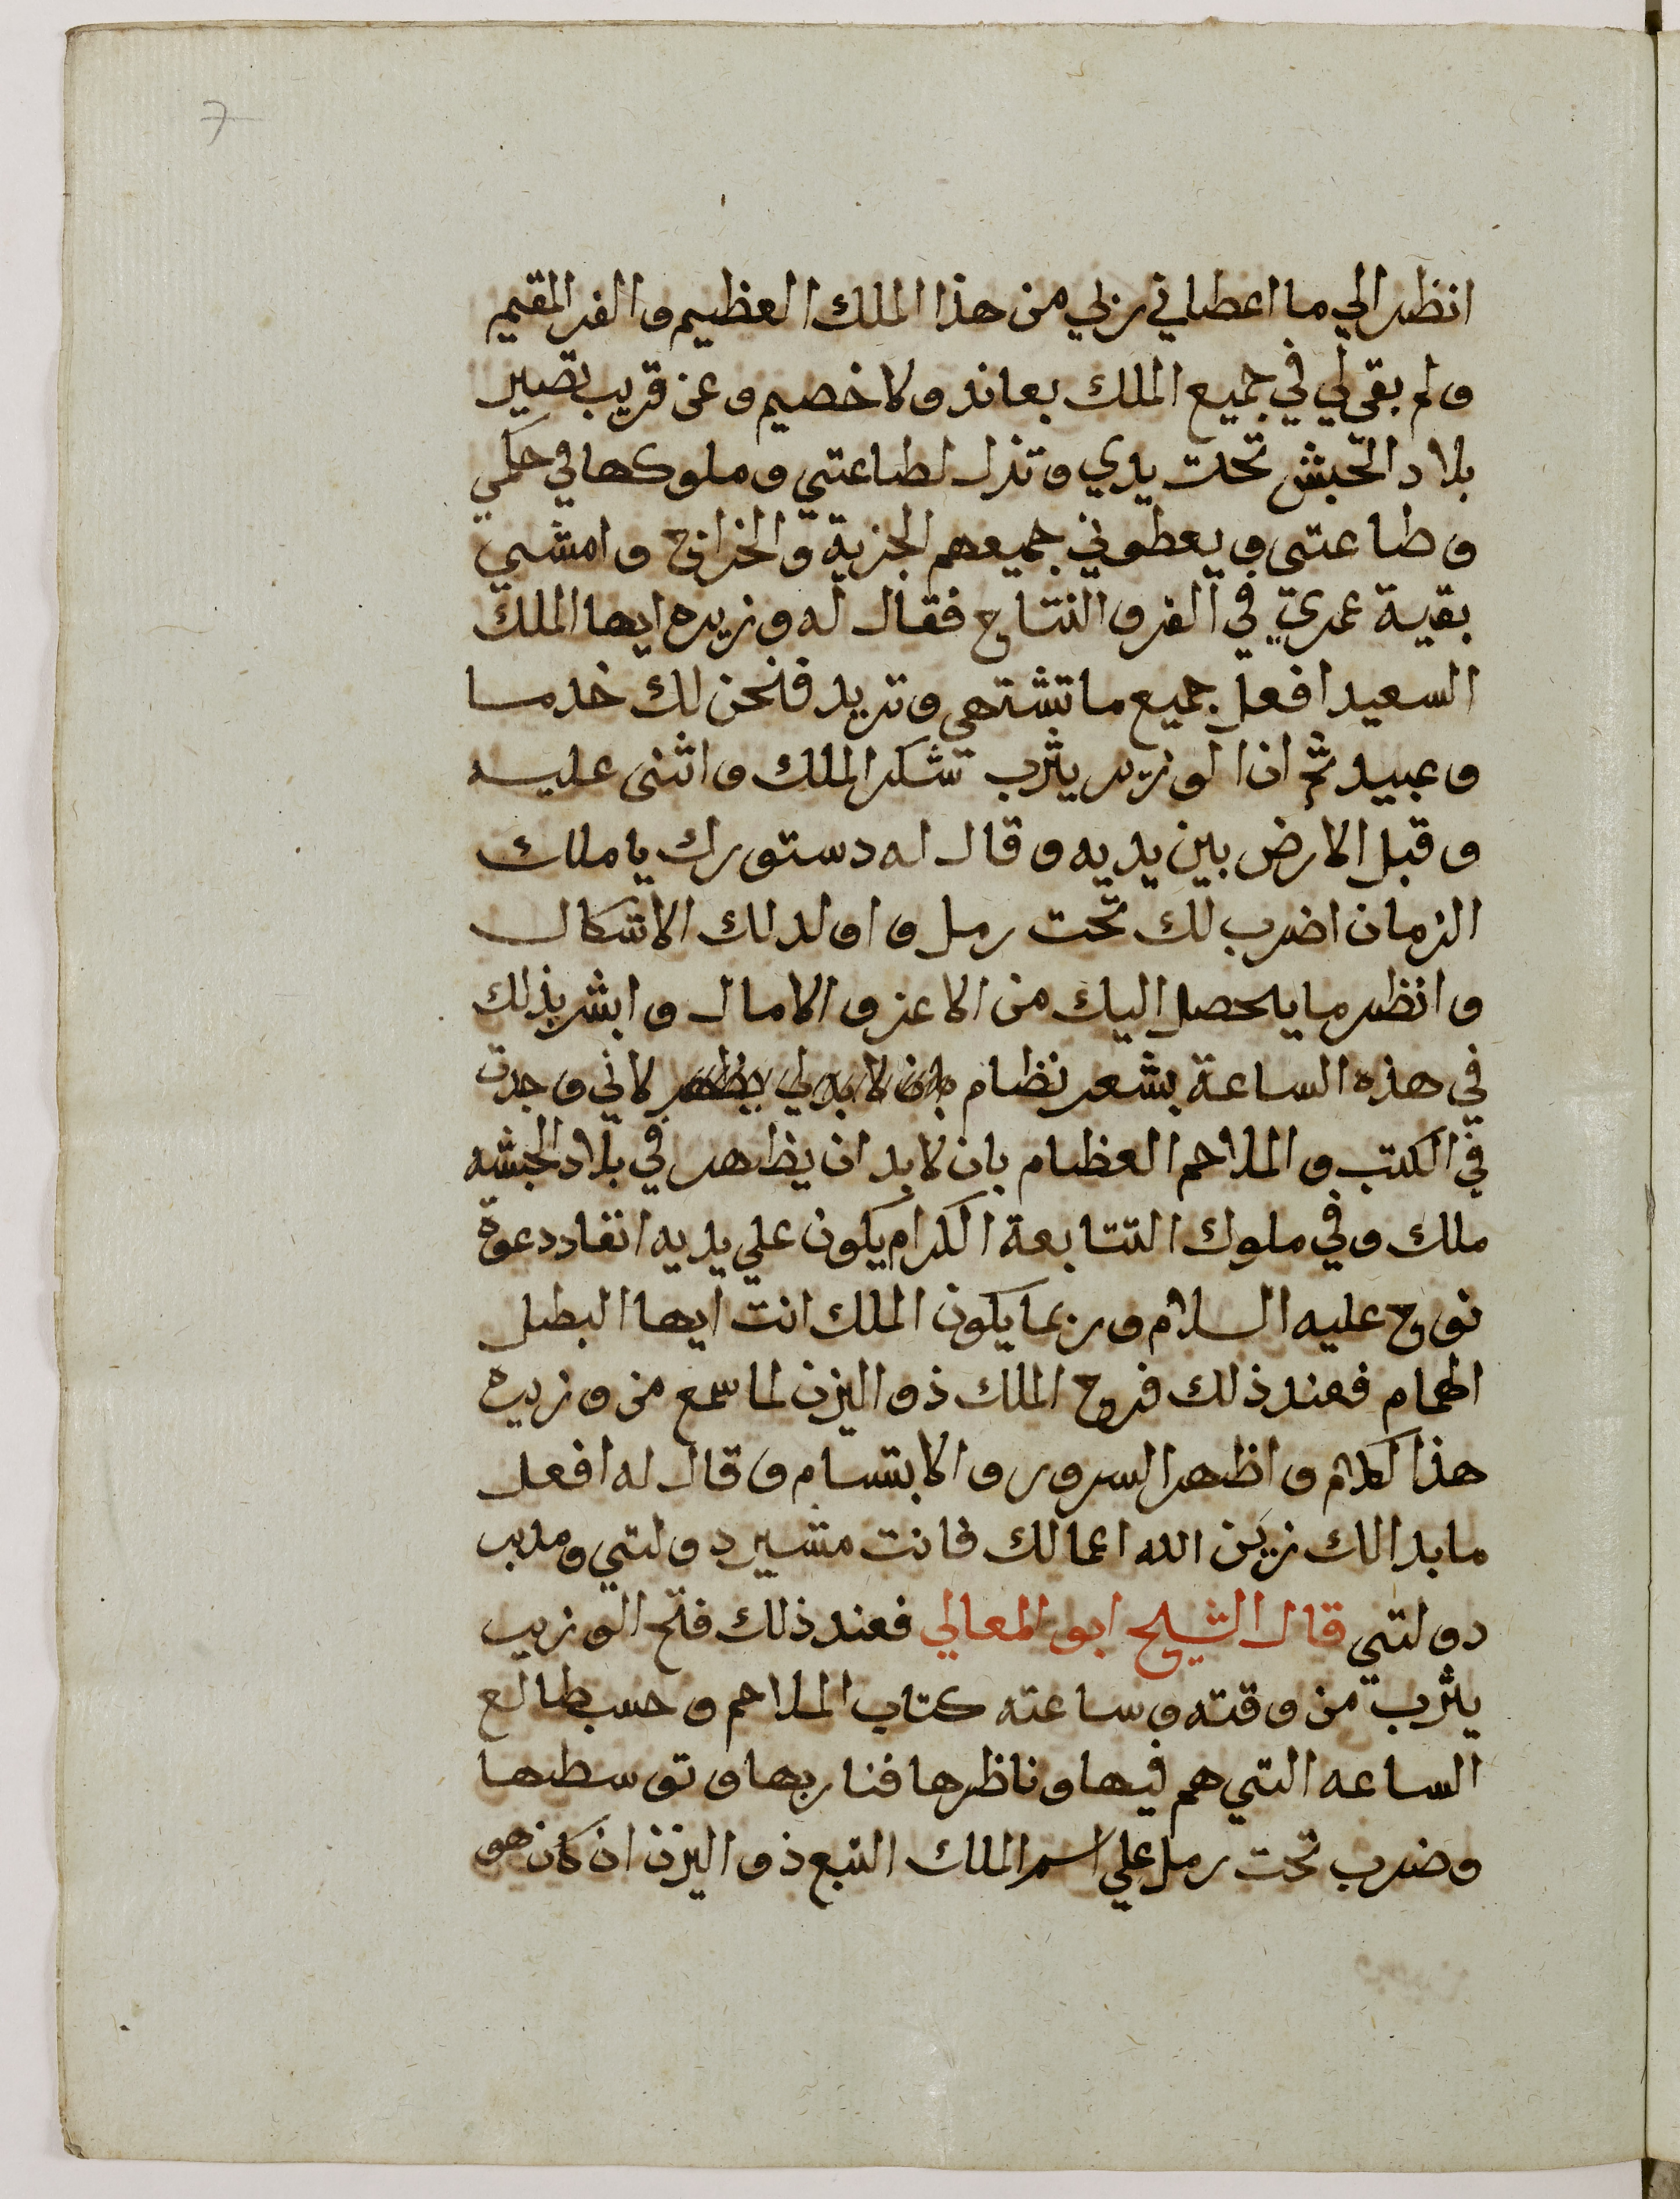 7
انظر الي ما اعطاني ربي من هذا الملك العظيم والفر المقيم
ولم بقى لي في جميع الملك بعاند ولا خصيم وعن قريب تصير
بلاد الحبش تحت يدي وتذل لطاعتي وملوكها في حكمي
وطاعتي ويعطوني جميعهم الجزية والخراج وامشي
بقية عمري في الفر والنتاج فقال له وزيره ايها الملك
السعيد افعل جميع ما تشتهي وتريد فنحن لك خدما
وعبيد ثم ان الوزير يثرب تشكر الملك واثنى عليه
وقبل الارض بين يديه وقال له دستورك يا ملك
الزمان اضرب لك تحت رمل واولد لك الاشكال
وانظر ما يحصل اليك من الاعز والامال وابشر بذلك
في هذه الساعة بشعر نظام بان لا بد لي يظهر لاني وجدت
في الكتب والملاحم العظام بان لا بد ان يظهر في بلاد الحبشه
ملك وفي ملوك التتابعة الكرام يكون علي يديه انفاد دعوة
نوح عليه السلام وربما يكون الملك انت ايها البطل
الهمام فعند ذلك فرح الملك ذو اليزن لما سمع من وزيره
هذا الكلام واظهر السرور والابتسام وقال له افعل
ما بدالك زين الله اعمالك فانت مشير دولتي ومدبر
دولتي قال الشيخ ابو المعالي فعند ذلك فتح الوزير
يثرب من وقته وساعته كتاب الملاحم وحسب طالع
الساعه التي هم فيها وناظرها فناربها وتوسطها
وضرب تحت رمل علي اسم الملك التبع ذو اليزن ان كان هو